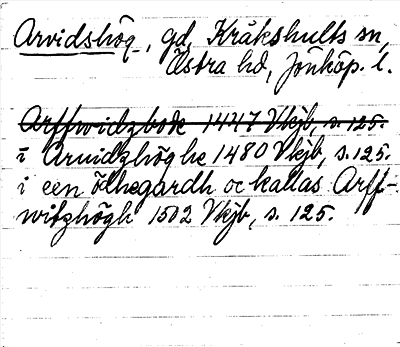 Arvidshög, gd, Kråkshults sn,
Östra hd, Jönköp. l.
Arffwidzbode 1447 Vkjb, s. 125.
i Aruidzhöghe 1480 Vkjb, s. 125.
i een ödhegardh oc kallas Arff-
witzhögh 1502 Vkjb, s. 125.